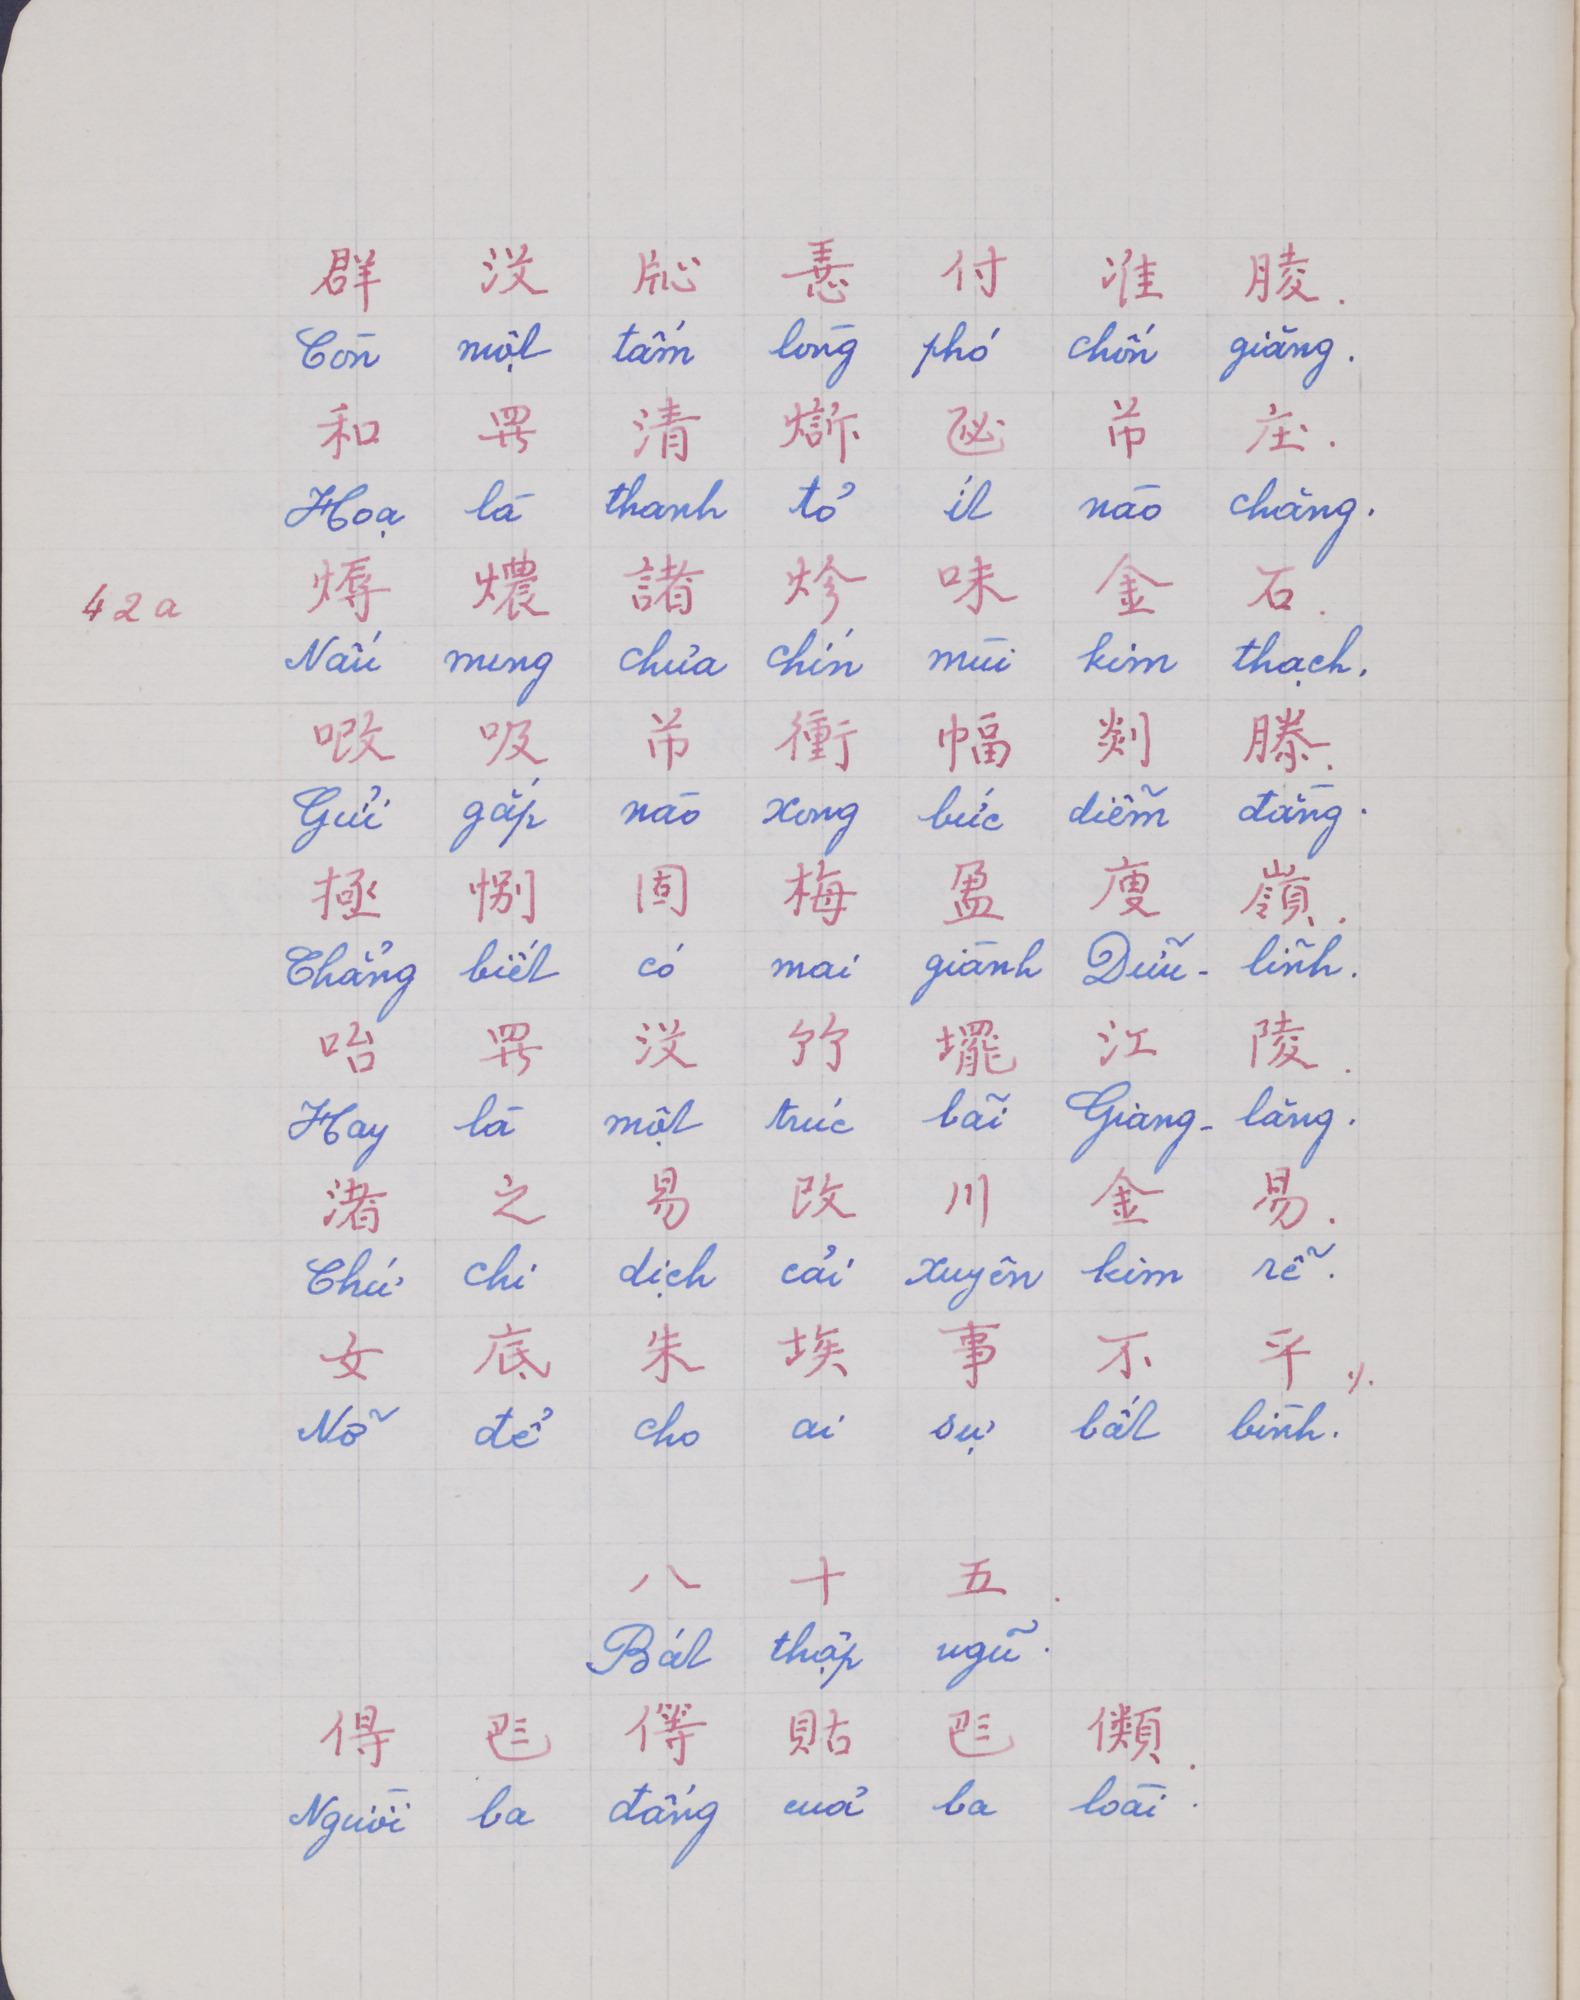 群 沒 𤗲 悪 付 准 䏾.
Còn một tấm lòng phó chốn giăng.
和 𱺵 清 𤍊 𠃣 芇 庄.
Hoạ là thanh tỏ ít nào chăng.
42a
燖 燶 諸 㐱 味 金 石.
Nấu nung chửa chín mùi kim thạch.
𠳚 吸 芇 衝 幅 剡 滕.
Gửi gắp nào xong bức diễm đằng.
拯 別 固 梅 盈 庾 嶺.
Chẳng biết có mai giành Dữu-lĩnh.
咍 𱺵 沒 竹 𡓁 江 陵.
Hay là một trúc bãi Giang-lăng.
渚 之 易 改 川 金 易.
Chứ chi dịch cải xuyên kim rễ.
女 底 朱 埃 事 不 平 ⁒.
Nỡ để cho ai sự bất bình.
八 十 五.
Bát thập ngũ.
得 𠀧 㑵 貼 𠀧 類.
Người ba đấng của ba loài.